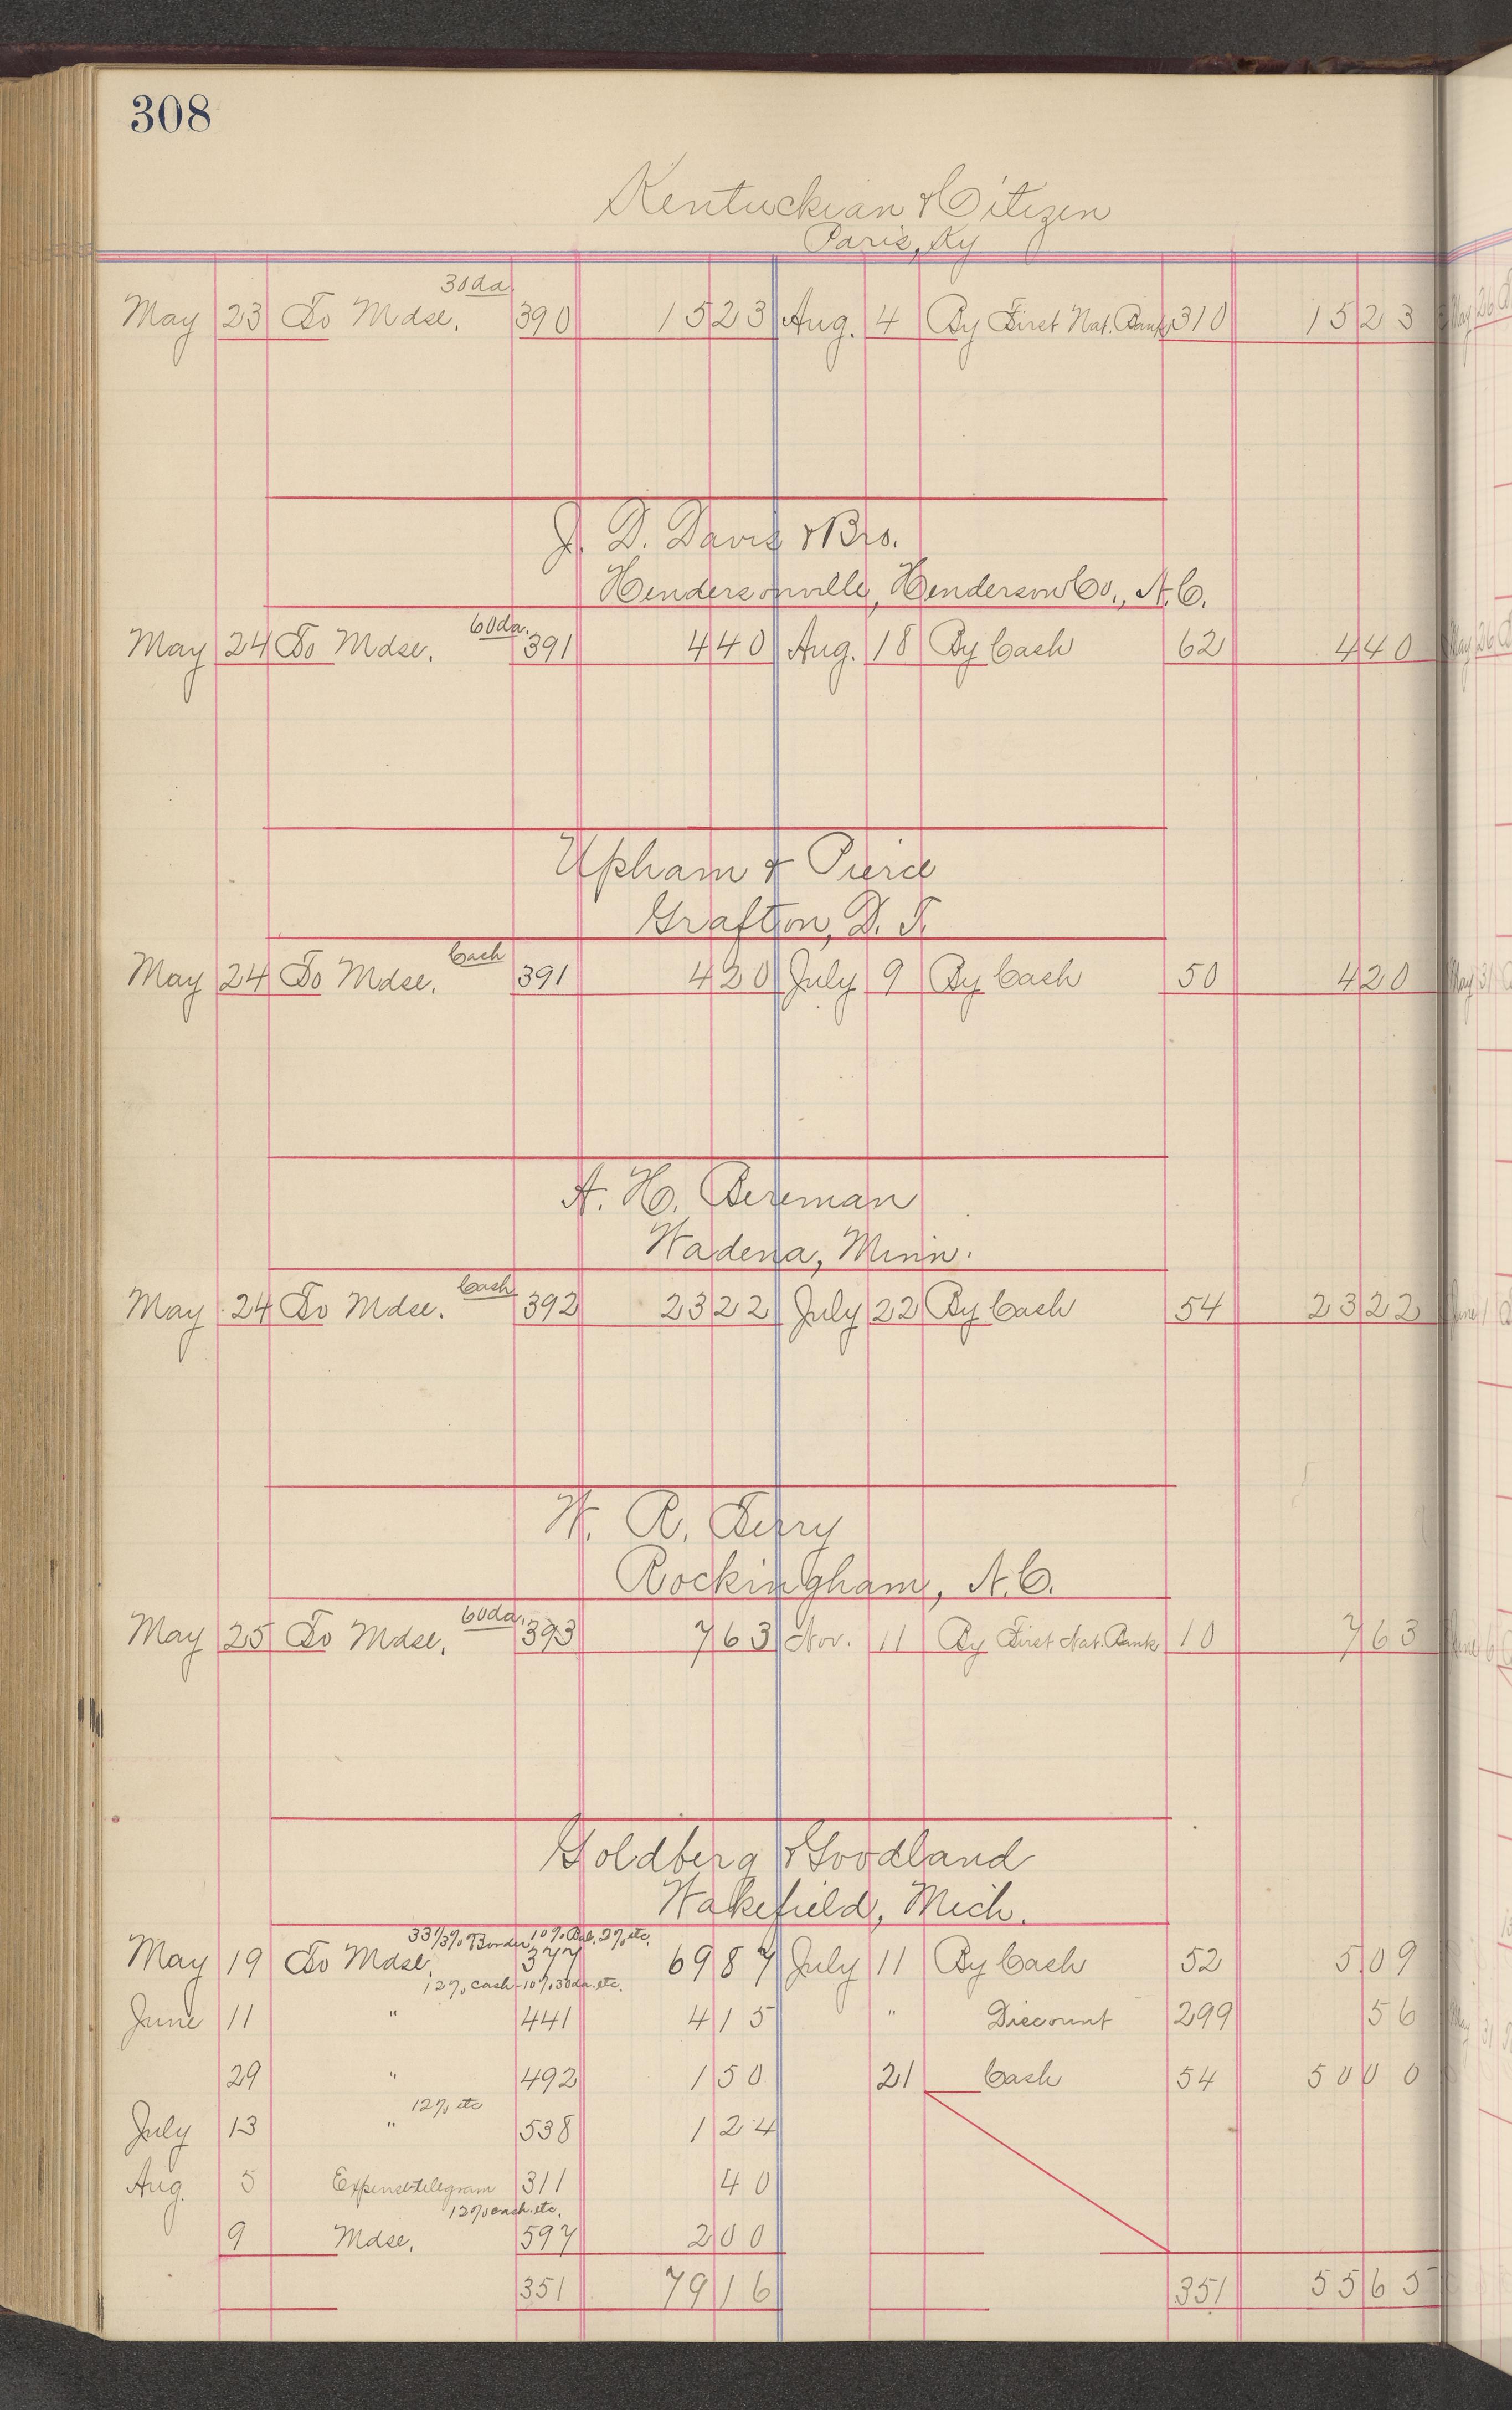 308
Kentuckian & Citizen
Paris, Ky
30da.
May 23 To Mdse. 390 15 23 Aug. 4 By First Nat. Bank 310 15 23
J. D. Davis & Bro.
Hendersonville, Henderson Co., N.C.
60da.
May 24 To Mdse. 391 4 40 Aug. 18 By Cash 62 4 40
Upham & Pierce
Grafton, D. T.
Cash
May 24 To Mdse. 391 4 20 July 9 By Cash 50 4 20
A. H. Bereman
Wadena, Minn.
Cash
May 24 To Mdse. 392 23 22 July 22 By Cash 54 23 22
W. R. Terry
Rockingham, N.C.
60da.
May 25 To Mdse. 393 7 63 Nov. 11 By First Nat. Bank 10 7 63
Goldberg & Goodland
Wakefield, Mich.
33 1/3% Border, 10% Bal. 2% etc.
May 19 To Mdse. 377 69 87 July 11 By Cash 52 5 09
12% cash - 10% 30da. etc.
June 11 " 441 4 15 " Discount 299 56
29 " 492 1 50 21 Cash 54 50 00
12% etc
July 13 " 538 1 24
Aug. 5 Expense-telegram 311 40
12% cash etc.
9 Mdse. 597 2 00
351 79 16 351 55 65